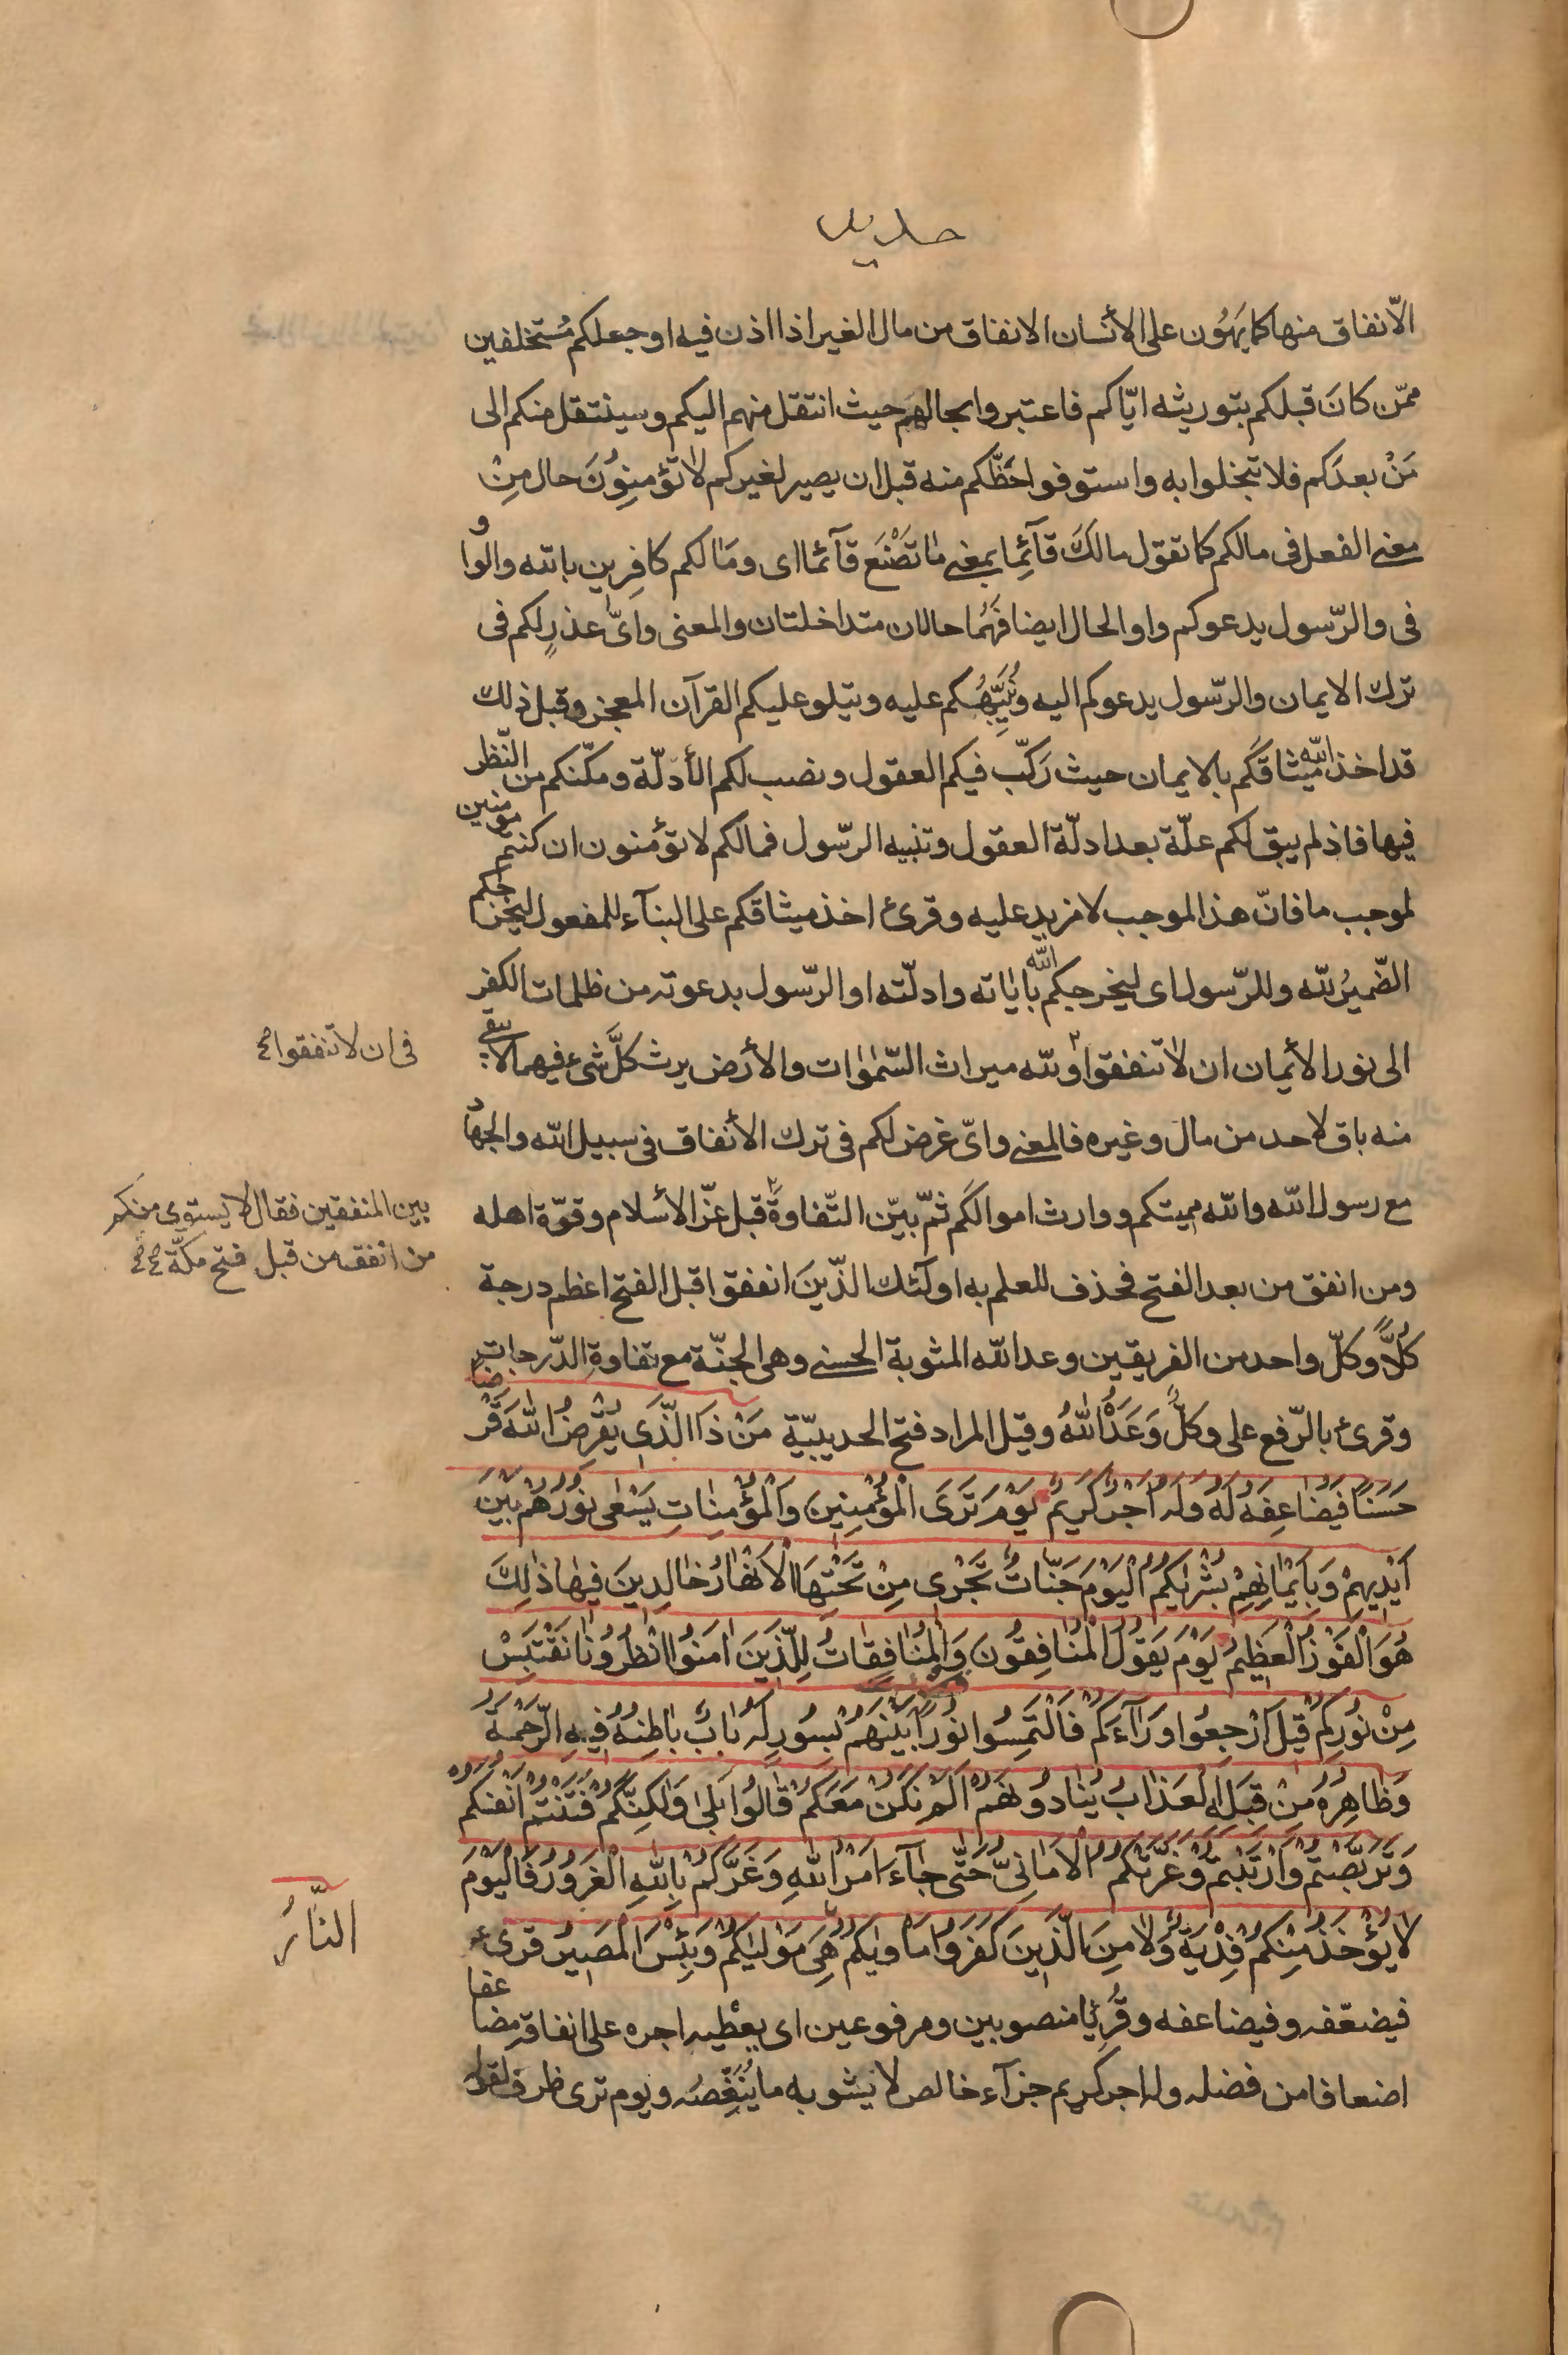 حديد
الانفاق منها كما يَهُون على الأنسان الانفاق من مال الغير اذا اذن فيه او جعلكم مُستخلفين
ممّن كانَ قبلكم بتوريثه ايّاكم فاعتبروا بحالهم حيث انتقل منهم اليكم وسينتقل منكم الى
مَنْ بعدكم فلا تبخلوا به واستوفوا حَظّكم منه قبل ان يصير لغيركم لا تؤمنِوُنَ حال مِنْ
معنى الفعل فى مالكم كما تقول مالكَ قآئِما بمعنى ما تَصْنَع قآئما اى ومَا لكم كافِرين بالله والواو
فى والرّسول يدعوكم واو الحال ايضا فهُما حالان متداخلتان والمعنى واىّ عذرٍ لكم فى
ترك الايمان والرّسول يدعوكم اليه ويُنَبِّهُكم عليه ويتلو عليكم القرآن المعجز وقبل ذلك
قد اخذ الله ميثاقكُم بالايمان حيث رَكّب فيكم العقول ونصب لكم الأدلّة ومكّنكم من النّظر
فيها فاذ لم يبق لكم علّة بعد ادلّة العقول وتنبيه الرّسول فمالكم لا تؤمنون ان كنتم مؤمنين
لموجب ما فانّ هذا الموجب لا مزيد عليه وقرئ اخذ ميثاقكم على البنآء للمفعول ليخرجكم
الضّميرُ لله وللرّسول اى ليخرجكم الله باٰياته وادلّته او الرّسول بدعوته من ظلمات الكفر
الى نور الأيمان ان لا تنفقوا ولله ميراث السّمٰوٰات والأرض يرث كلَّ شىء فيهما لا يبقى
فى ان لا تنفقوا صح
منه باق لاحد من مال وغيره فالمعنى واىّ غرض لكم فى ترك الأنفاق فى سبيل الله والجهاد
مع رسول الله والله مميتكم ووارث اموالكم ثمّ بيّن التّفاوةَ قبل عزّ الأسلام وقوّة اهله
بين المنفقين فقال لا يستوى منكم
من انفق من قبل فتح مكّة صح صح
ومن انفق من بعد الفتح فحذف للعلم به اولٓئك الذّينَ انفقوا قبل الفتح اعظم درجة
كُلاًّ وكلّ واحد من الفريقين وعد الله المثوبة الحسنى وهى الجنّة مع تفاوةِ الدّرجات
وقرئ بالرّفع على وكلٌّ وَعَدَهُ اللهُ وقيل المراد فتح الحديبيّة مَنْ ذَا الَّذى يُقْرِضُ اللهَ قَرْضاً
حَسَناً فَيُضاعِفَهُ لَهُ وله اَجْرٌ كَريمٌ يَوْمَ تَرَى الْمُؤْمِنِينَ وَالْمُؤْمِنٰاتِ يَسْعٰى نُورُهُمْ بَيْنَ
اَيْديهِمْ وَبِاَيْمٰانِهِمْ بُشْرٰيكُمُ الْيَوْمَ جَنّاتٌ تَجْرى مِنْ تَحْتِهَا الْاَنْهٰارُ خٰالِدينَ فيهٰا ذٰلِكَ
هُوَ الْفَوْزُ الْعَظيمُ يَوْمَ يَقُولُ الْمُنٰافِقُونَ وَالْمُنٰافِقٰاتُ لِلَّذينَ اٰمَنُوا انْظُرُونٰا نَقْتَبِسْ
مِنْ نُورِكُمْ قيلَ ارْجِعُوا وَرٰآءَكُمْ فَالْتَمِسُوا نُوراً بَيْنَهُمْ بِسُورٍ لَهُ بٰابٌ بٰاطِنُهُ فيهِ الرَّحْمَةُ
وَظٰاهِرُهُ مِنْ قِبَلِهِ الْعَذٰابُ يُنٰادُونَهُمْ اَلَمْ نَكُنْ مَعَكُمْ قٰالُوا بَلٰى وَلٰكِنَّكُمْ فَتَنْتُمْ اَنْفُسَكُمْ
وَتَرَبَّصْتُمْ وَارْتَبْتُمْ وَغَرَّتْكُمُ الْاَمٰانِىُّ حَتّٰى جٰآءَ اَمْرُ اللهِ وَغَرَّكُمْ بِاللهِ الْغَرُورُ فَالْيَوْمَ
لٰا يُؤْخَذُ مِنْكُمْ فِدْيَةٌ وَلٰا مِنَ الَّذينَ كَفَرُوا مَاْوٰيكُمُ هِىَ مَوْلٰيكُمْ وَبِئْسَ الْمَصيرُ قرئ
النّٰارُ
فيضعّفه وفيضاعفه وقُرِئا منصوبين ومرفوعين اى يعْطيه اجره على انفاقه مضاعفا
اضعافا من فضله وله اجر كريم جزآء خالص لا يشوبه ما يُنَغِّصُه ويوم ترى ظرف لقوله